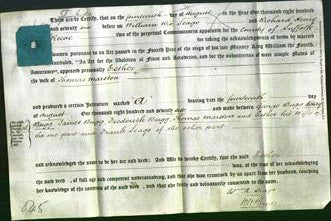 These are to Certify, that on the fourteenth day of August in the Year One thousand eight
hundred and sixty six before us William W. Seago and Richard Henry
two of the perpetual Commissioners appointed for the County of Suffolk
for taking the acknowledgments of deeds by married
women, pursuant to an Act passed in the Fourth Year of the reign of his late Majesty King William the Fourth,
intituled, "An Act for the Abolition of Fines and Recoveries, and for the substitution of more simple Modes of
Assurance," appeared personally Esther
the wife of Thomas Marston
and produced a certain Indenture marked A bearing date the fourteenth day
of August One thousand eight hundred and sixty six and made between George Bugg
James Bugg Frederick Bugg Thomas Marston and Esther his wife of
the one part and Frank Seago of the other part
and acknowledged the same to be her act and deed: And We do hereby Certify, that the said Esther
was, at the time of her acknowledging
the said deed, of full age and competent understanding, and that she was examined by us apart from her husband, touching
her knowledge of the contents of the said deed, and that she freely and voluntarily consented to the same.
845